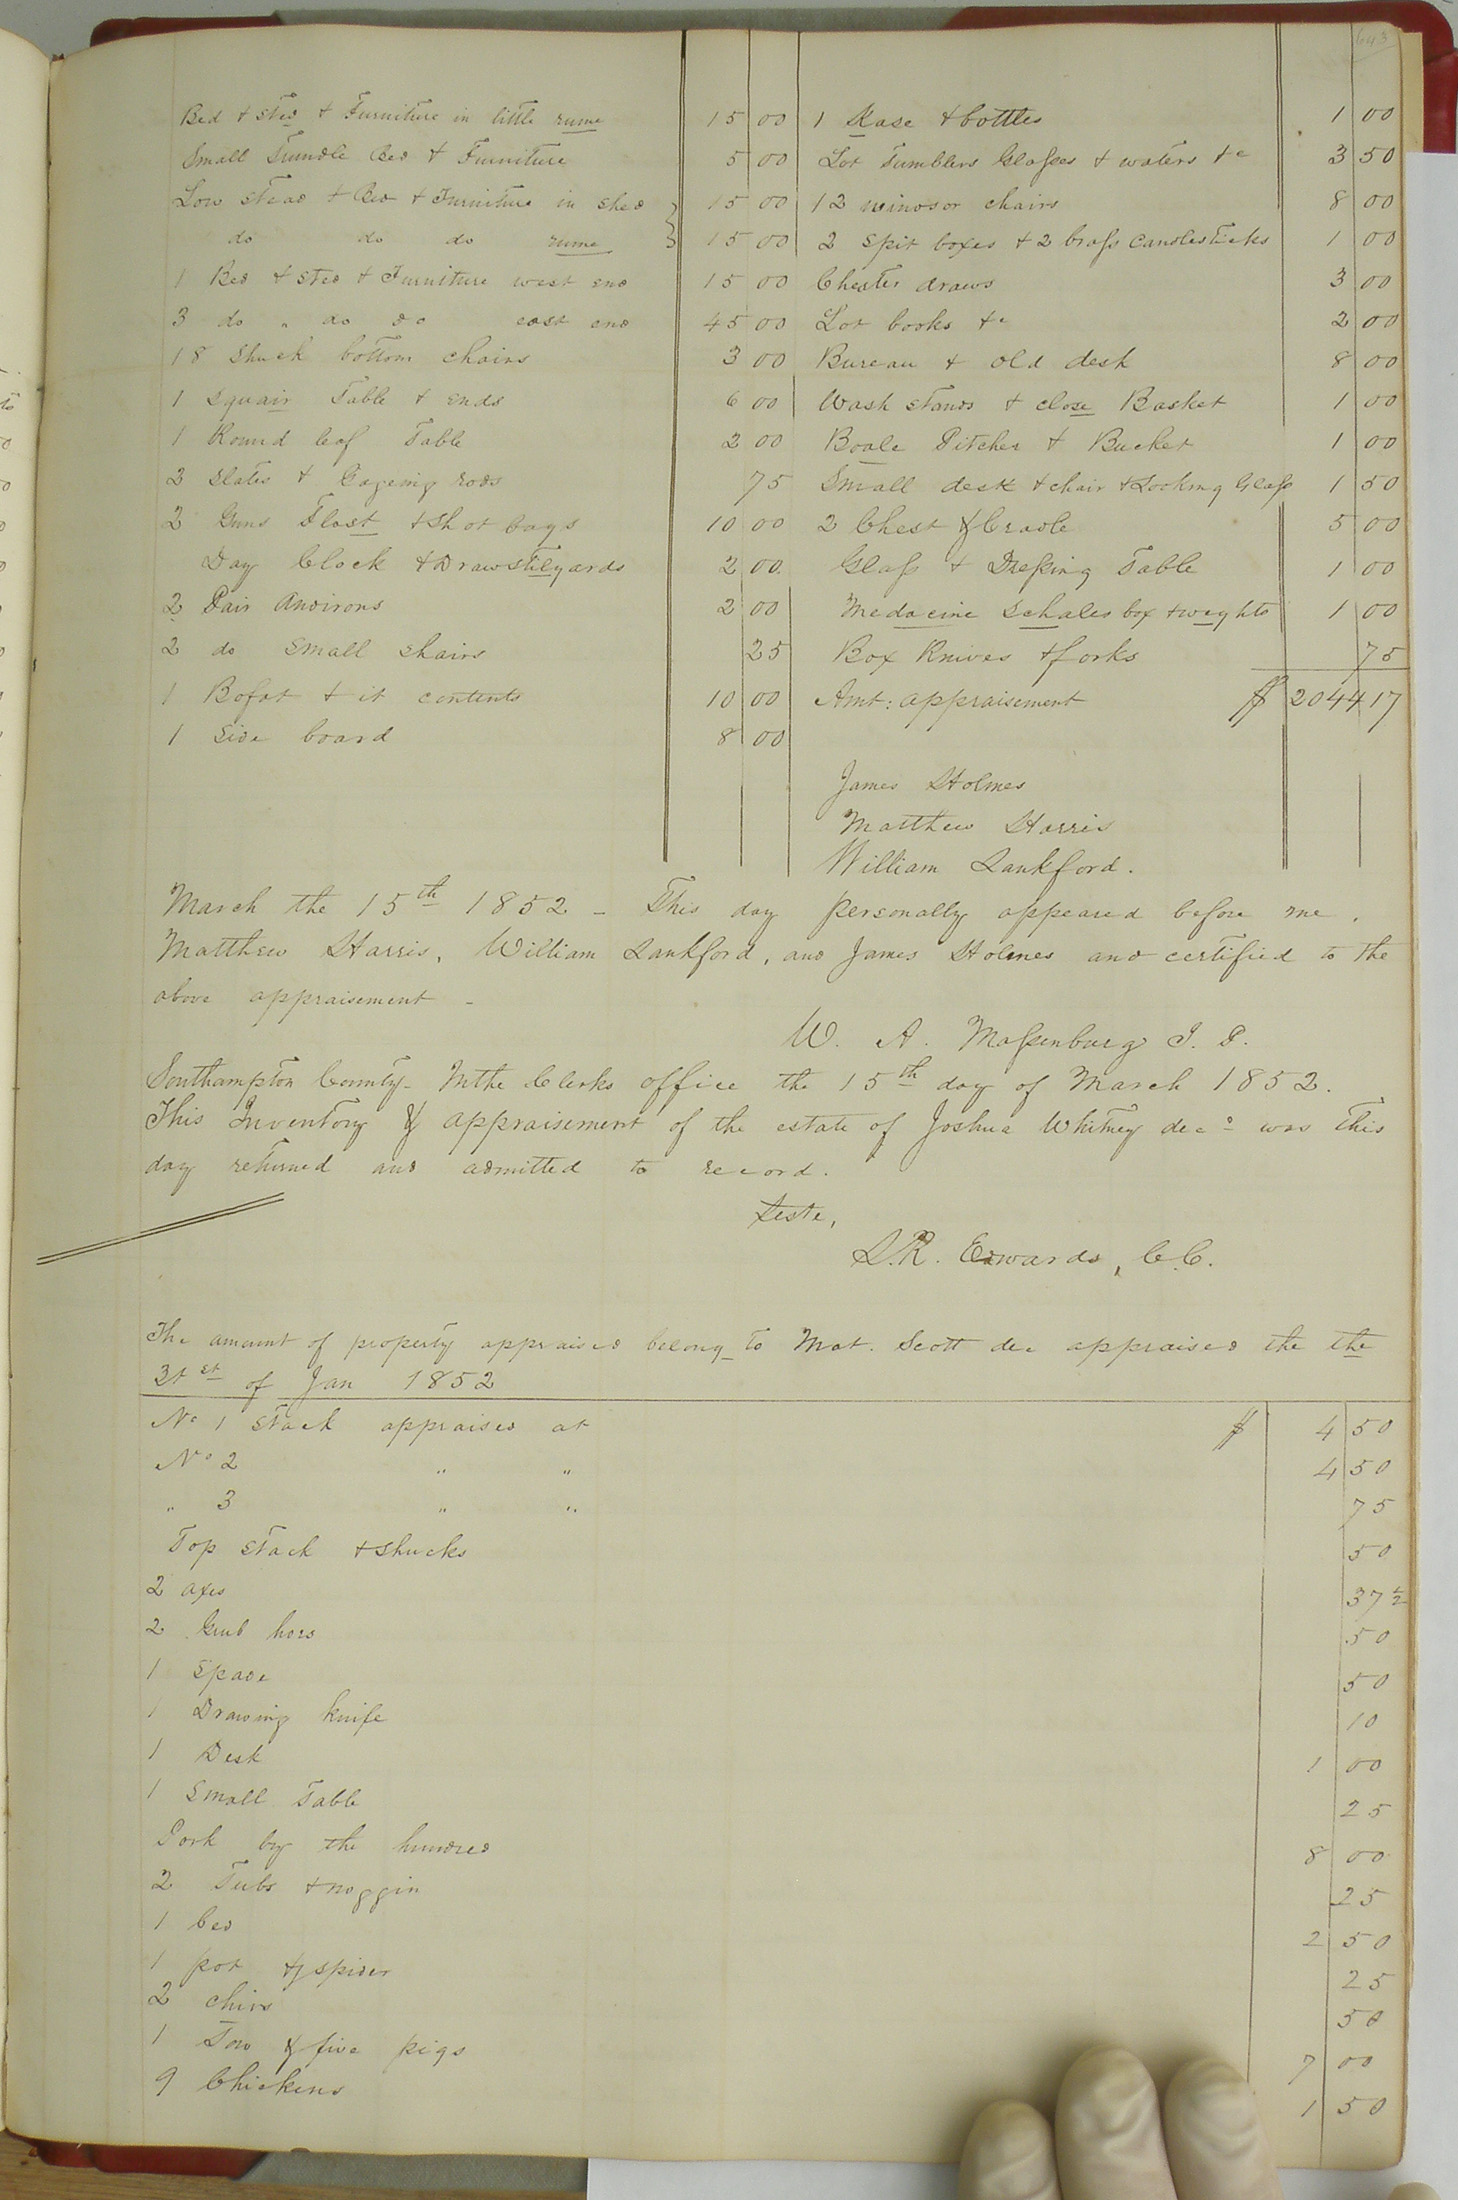 643
Bed & sted & Furniture in little rume 15 00
Small Trundle Bed & Furniture 5 00
Low stead & Bed & Furniture in shed 15 00
do do do rume 15 00
1 Bed & sted & Furniture west end 15 00
3 do " do do east end 45 00
18 Shuck bottom chairs 3 00
1 Squair Table & ends 6 00
1 Round leaf Table 2 00
2 Slates & Gageing rods 75
2 Guns Flast & Shot bags 10 00
Day Clock & Draw stilyards 2 00
2 Pair Andirons 2 00
2 do small chairs 25
1 Bofat & it contents 10 00
1 Side board 8 00
1 Kase & bottles 1 00
Lot Tumblers Glasses & waters &c 3 50
12 windsor chairs 8 00
2 Spit boxes & 2 brass candlesticks 1 00
Chester draws 3 00
Lot books &c 2 00
Bureau & old desk 8 00
Wash stands & close Basket 1 00
Boale Pitcher & Bucket 1 00
Small desk & chair & Looking Glass 1 50
2 Chest & Cradle 5 00
Glass & Dressing Table 1 00
Medacine Schales box & weghts 1 00
Box Knives & forks 75
Amt: appraisement $ 2044 17
James Holmes
Matthew Harris
William Lankford.
March the 15th 1852 - This day personally appeared before me,
Matthew Harris, William Lankford, and James Holmes and certified to the
above appraisement -
W. A. Massenburg J. P.
Southampton County - In the Clerks office the 15th day of March 1852.
This Inventory & appraisement of the estate of Joshua Whitney decd was this
day returned and admitted to record.
Teste,
L.R. Edwards, C.C.
The amount of property appraised belong to Mat. Scott dec appraised the the
31st of Jan 1852
No 1 Stack appraised at $ 4 50
No 2 " " 4 50
" 3 " " 75
Top stack & shucks 50
2 axes 37 1/2
2 Grub hoes 50
1 Spade 50
1 Drawing knife 10
1 Desk 1 00
1 Small Table 25
Pork by the hundred 8 00
2 Tubs & noggin 25
1 bed 2 50
1 pot & spider 25
2 chirs 50
1 Sow & five pigs 7 00
9 Chickens 1 50